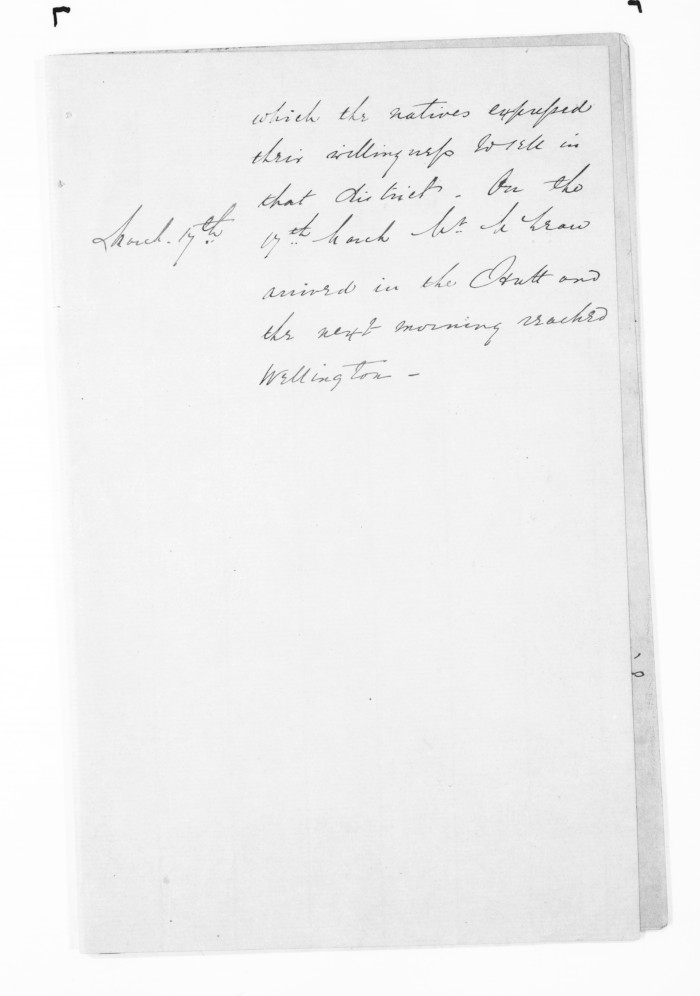 which the natives expressed
their willingness to sell in
that district - On the
March 17th 17th March Mr. McLean
arrived in the Hutt and
the next morning reached
Wellington -